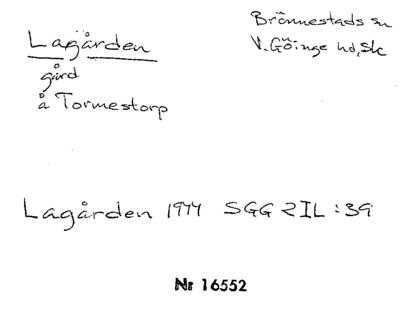 Lagården
gård
å Tormestorp
Brönnestads sn
V. Göinge hd, Sk
Lagården 1944 SGG 2IL:39
Nr 16552